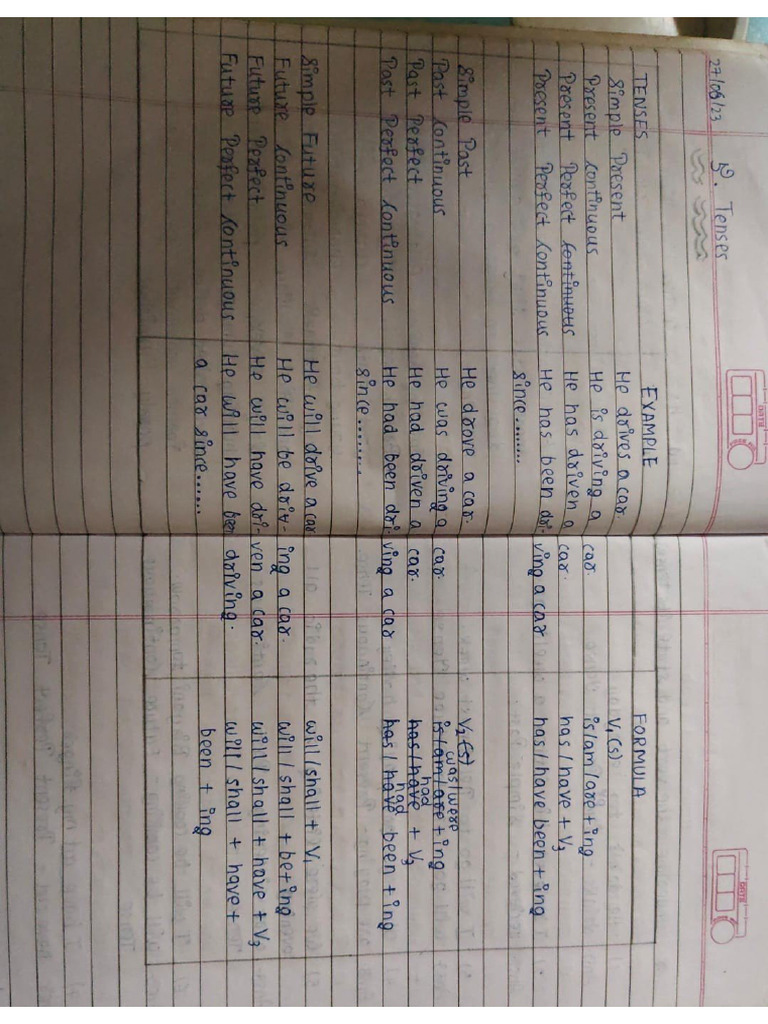 27/06/23
8. Tenses
TENSES EXAMPLE FORMULA
Simple Present He drives a car. V1(s)
Present Continuous He is driving a car. is/am/are+ing
Present Perfect Continuous He has driven a car. has/have + V3
Present Perfect Continuous He has been dri-ving a car has/have been + ing
since.......
Simple Past He drove a car. V2(s)
was/were
Past Continuous He was driving a car. is/am/are+ing
had
Past Perfect He had driven a car. has/have + V3
had
Past Perfect Continuous He had been dri-ving a car has/have been + ing
since........
Simple Future He will drive a car will/shall + V1
Future Continuous He will be driv-ing a car. will/shall + be+ing
Future Perfect He will have dri-ven a car. will/shall + have + V3
Future Perfect Continuous He will have been driving. will/shall + have +
a car since...... been + ing
DATE
DATE